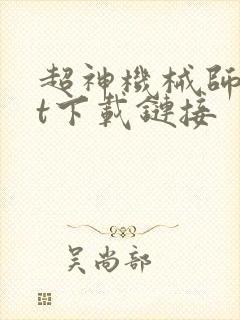 超神機械師
t下載鏈接
吴尚部